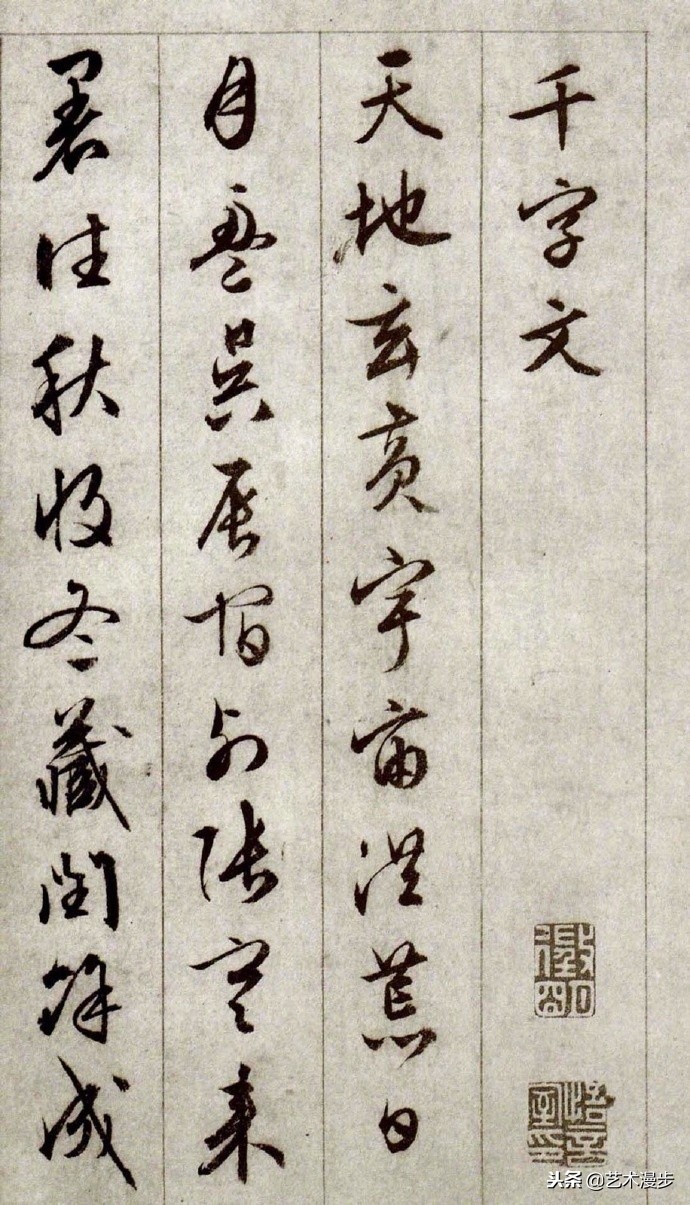 千字文
天地玄黃宇宙洪荒日
月盈昃辰宿列張寒来
暑往秋收冬藏閏餘成
徵明
悟言室印
头条 @艺术漫步